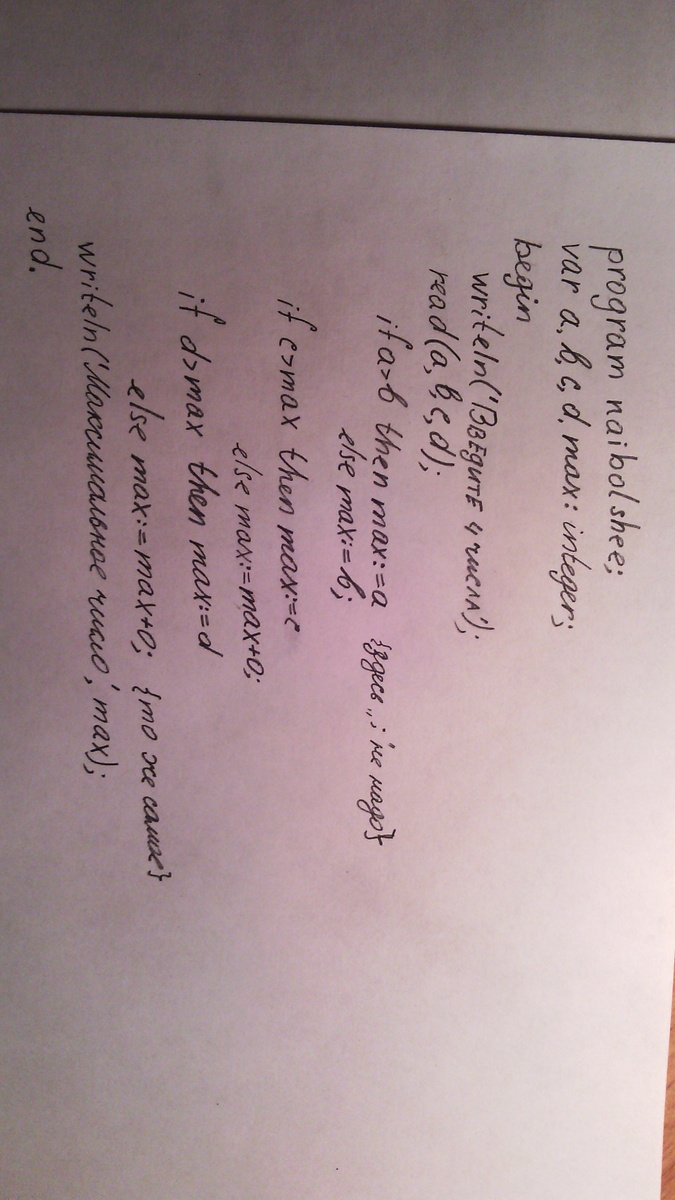 program naibolshee;
var a,b,c,d,max: integer;
begin
writeln('Введите 4 числа');
read(a,b,c,d);
if a>b then max:=a {здесь „; не надо}
else max:=b;
if c>max then max:=c
else max:=max+0;
if d>max then max:=d
else max:=max+0; {то же самое}
writeln('Максимальное число', max);
end.